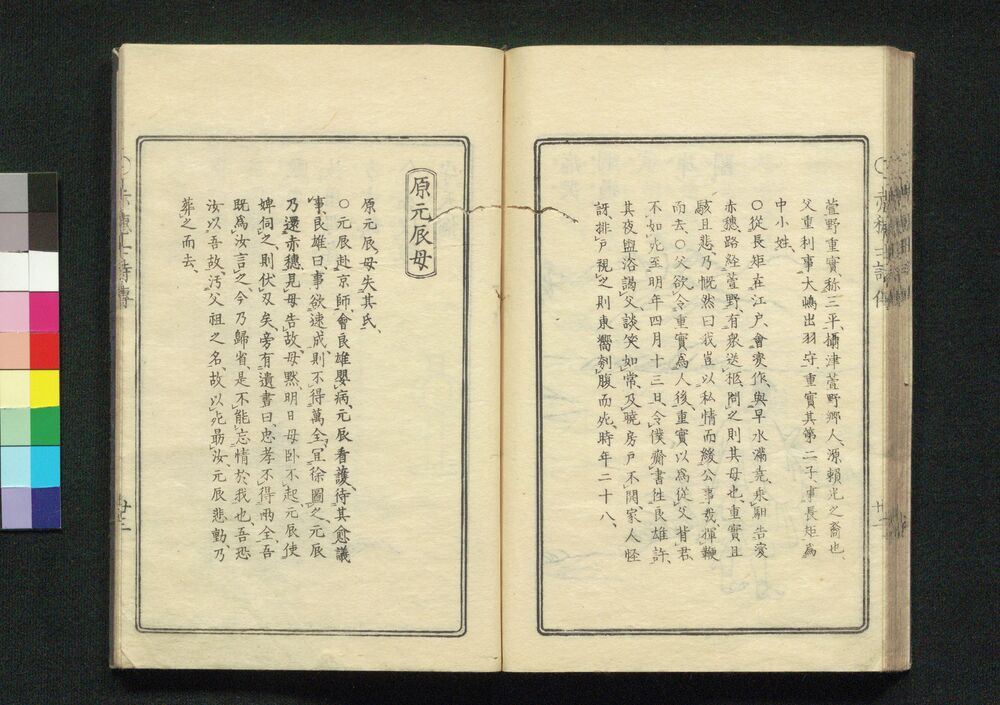 萱野重實、称三平、攝津萱野郷人、源賴光之裔也、
父重利事大嶋出羽守重實其第二子、事長矩爲
中小姓、
〇從長矩在江戸、會変作、與早水滿尭乘馳告変
赤穗路經萱野、有衆送柩、問之則其母也、重實且
駭且悲乃慨然曰我豈以私情而緩公事哉、揮鞭
而去、〇父欲令重實爲人後、重實以爲從父背君、
不如死、至明年四月十三日、令僕齎書往良雄許、
其夜盥浴謁父談笑如常、及曉房戸不開、家人怪
訝、排戸視之則東嚮刳腹而死、時年二十八、
原元辰母
原元辰母失其氏、
〇元辰赴京師、會良雄嬰病、元辰看護、待其愈議
事、良雄曰、事欲速成則不得萬全、宜徐圖之、元辰
乃還赤穗、見母告故、母默、明日母卧不起、元辰使
婢伺之、則伏刃矣、旁有遺書曰、忠孝不得兩全、吾
既爲汝言之、今乃歸省、是不能忘情於我也、吾恐
汝以吾故汚父祖之名、故以死勗汝、元辰悲慟、乃
葬之而去、